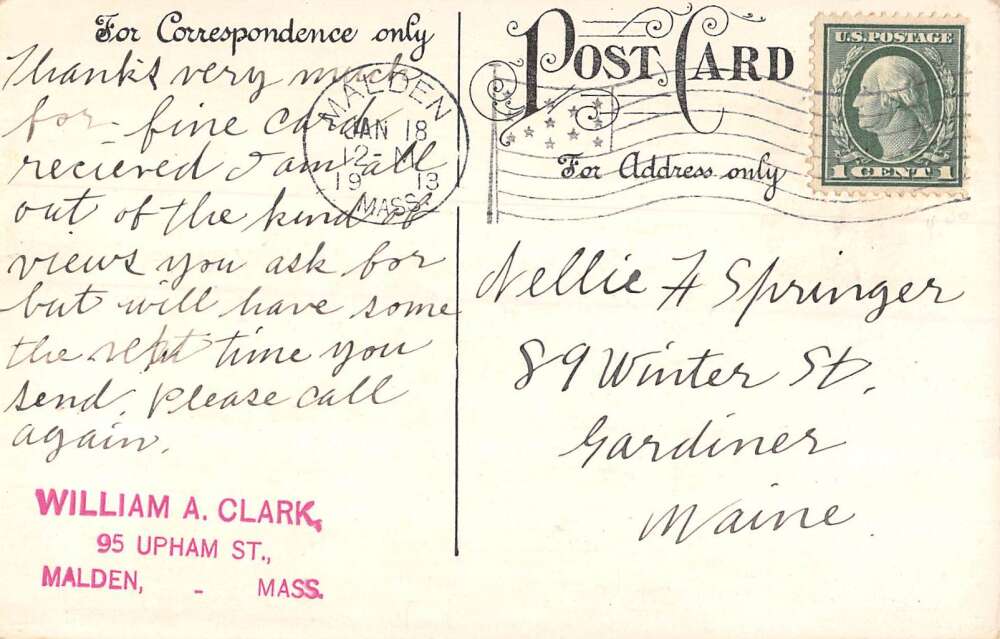 For Correspondence only
Thanks very much
for fine card
recieved I am all
out of the kind of
views you ask for
but will have some
the next time you
send. Please call
again.
WILLIAM A. CLARK,
95 UPHAM ST.,
MALDEN, - MASS.
MALDEN
JAN 18
12-M
19 13
MASS.
POST CARD
For Address only
U.S. POSTAGE
1 CENT 1
Nellie F Springer
89 Winter St.
Gardiner
Maine.